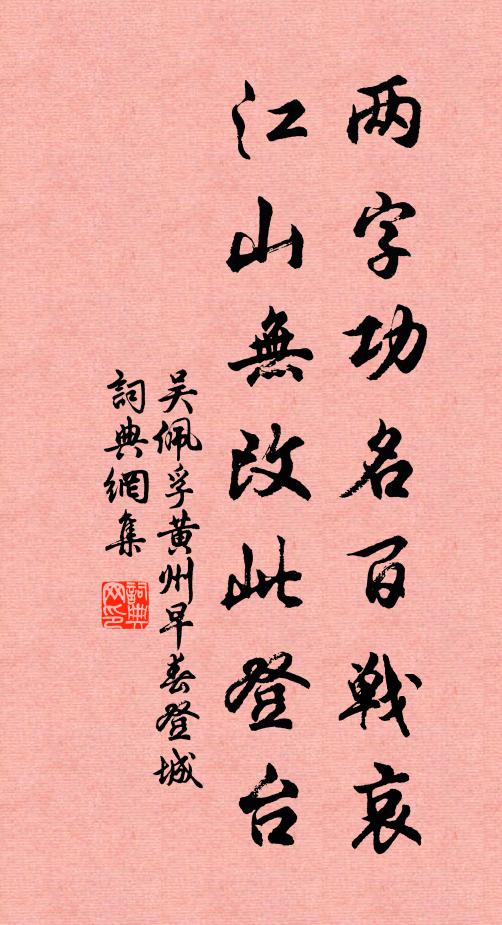 两字功名百戰哀
江山無改此登台
吴佩孚黄州早春登城
詞典網集
詞典网印